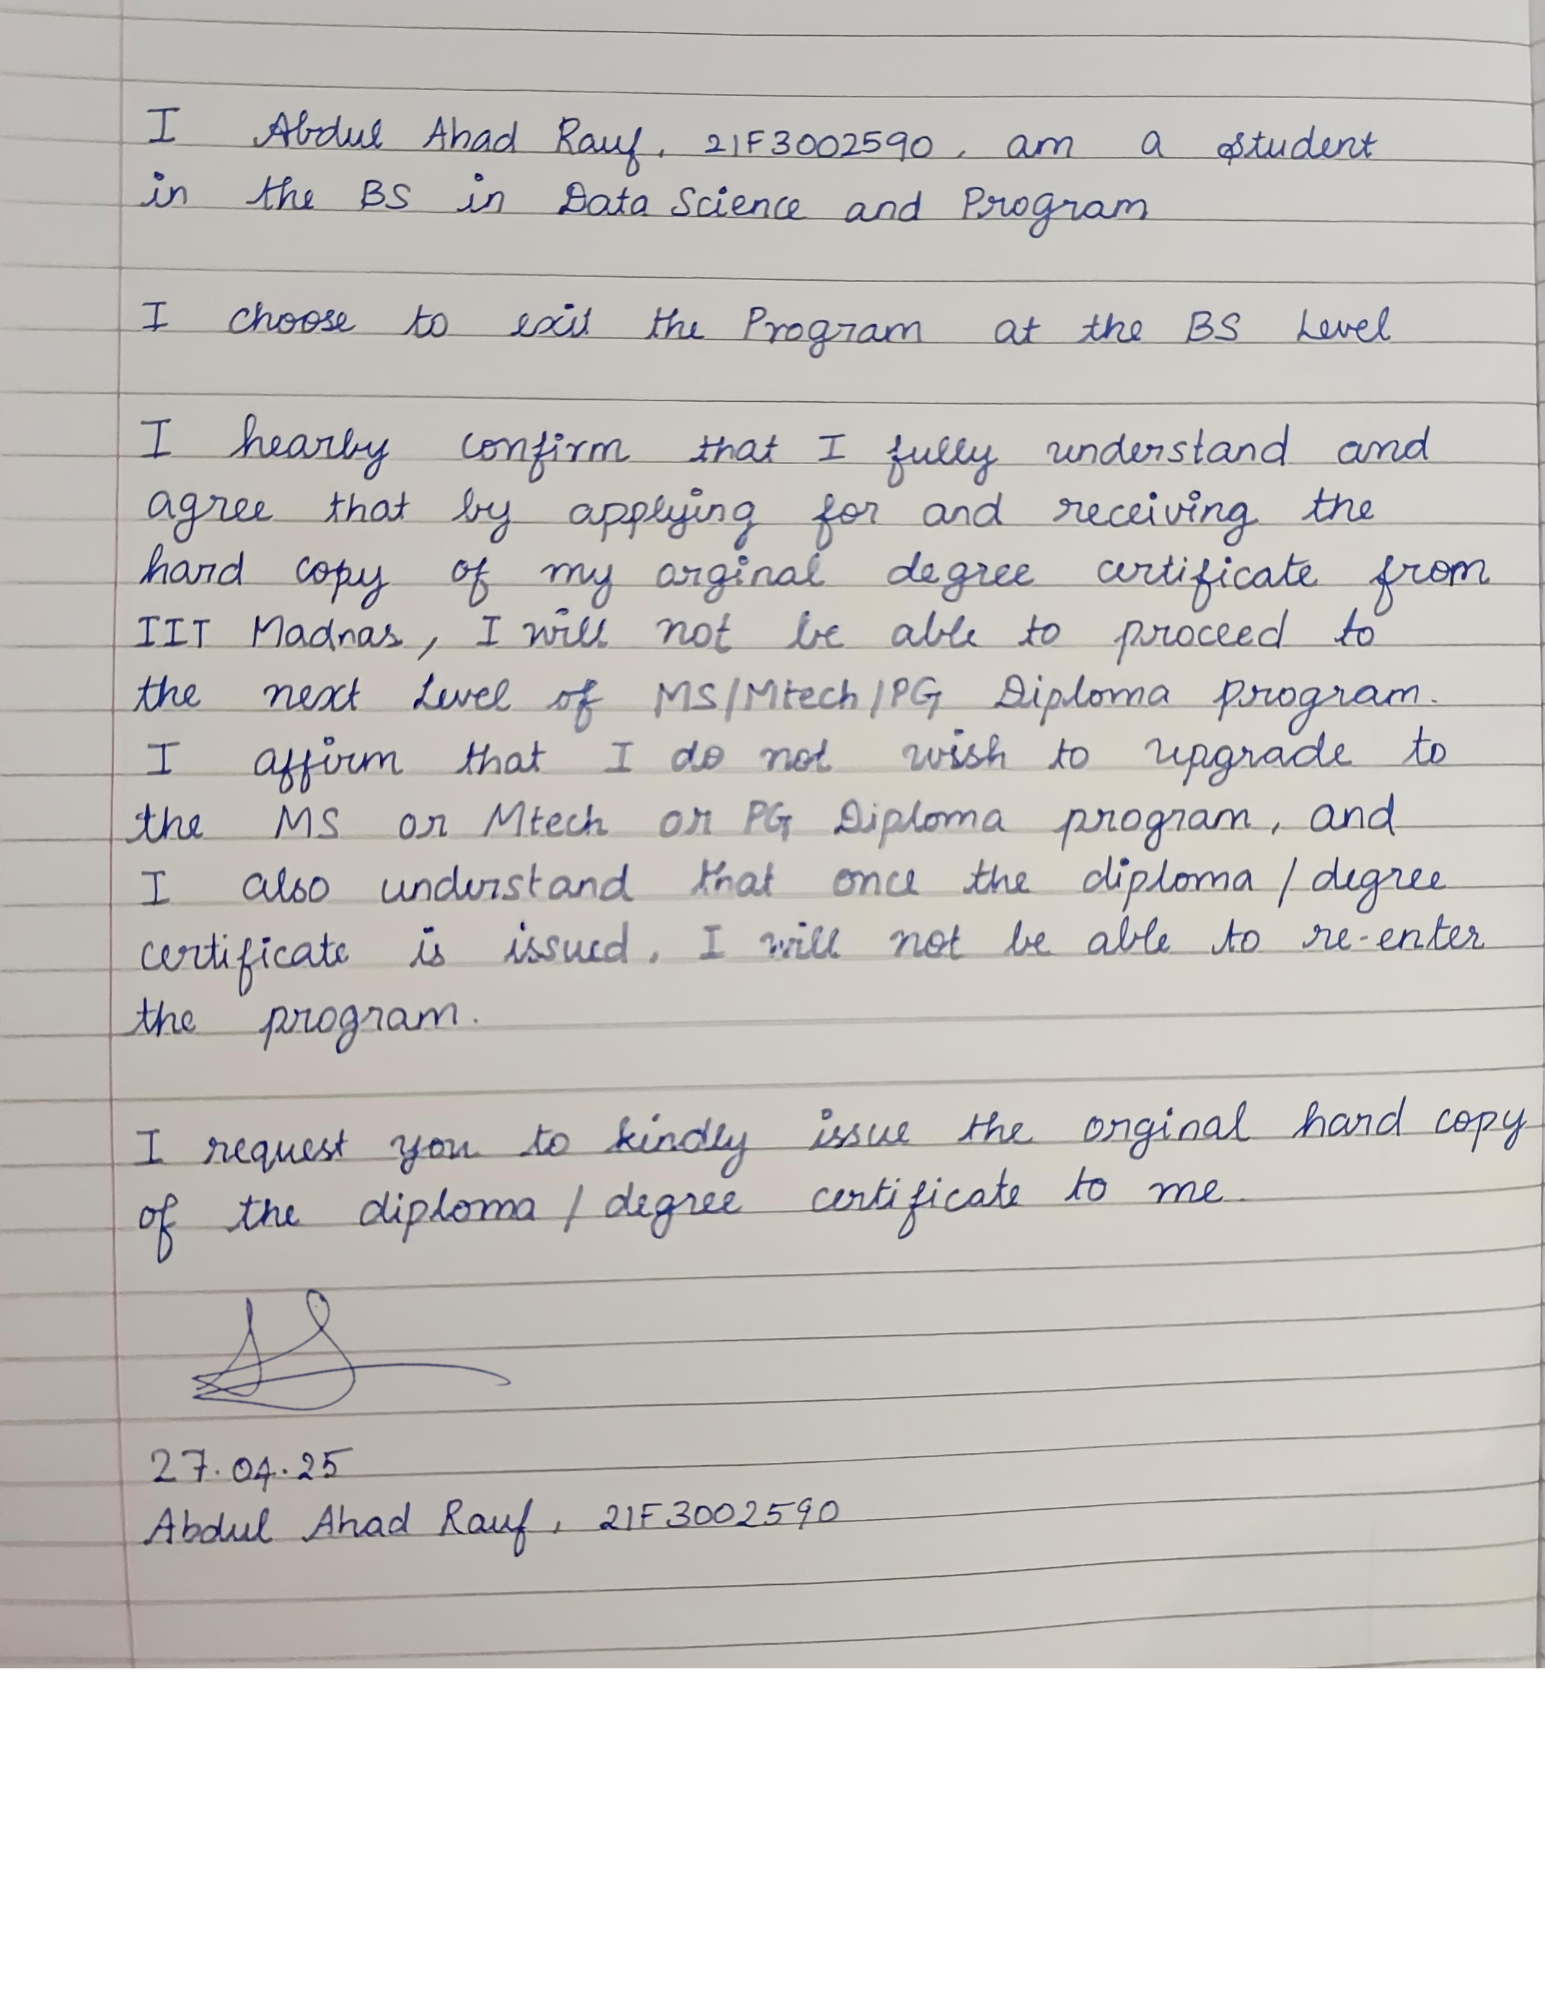 I Abdul Ahad Rauf, 21F3002590, am a student
in the BS in Data Science and Program
I choose to exit the Program at the BS Level
I hearby confirm that I fully understand and
agree that by applying for and receiving the
hard copy of my orginal degree certificate from
IIT Madras, I will not be able to proceed to
the next Level of MS/Mtech/PG Diploma program.
I affirm that I do not wish to upgrade to
the MS or Mtech or PG Diploma program, and
I also understand that once the diploma / degree
certificate is issued, I will not be able to re-enter
the program.
I request you to kindly issue the orginal hard copy
of the diploma / degree certificate to me.
27.04.25
Abdul Ahad Rauf, 21F3002590